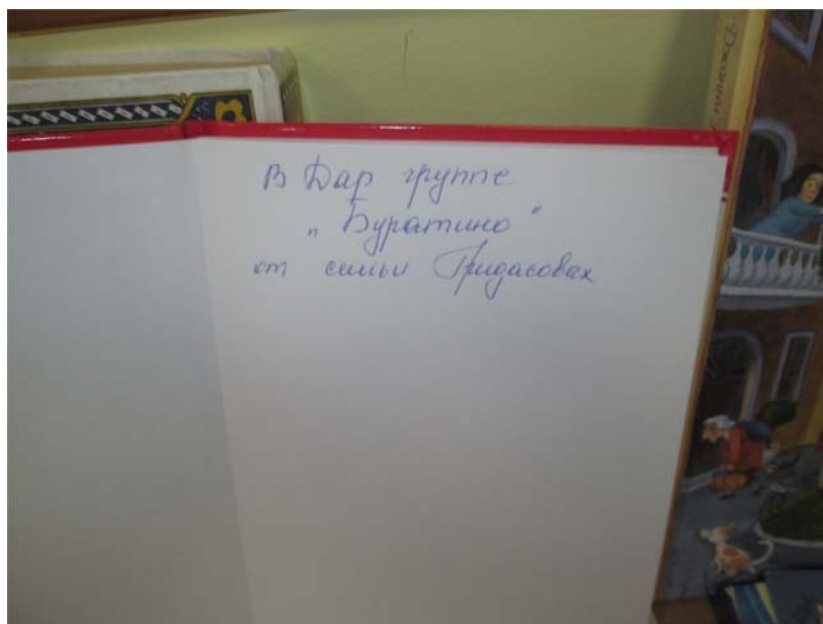 В Дар группе
„Буратино“
от семьи Гридасовах